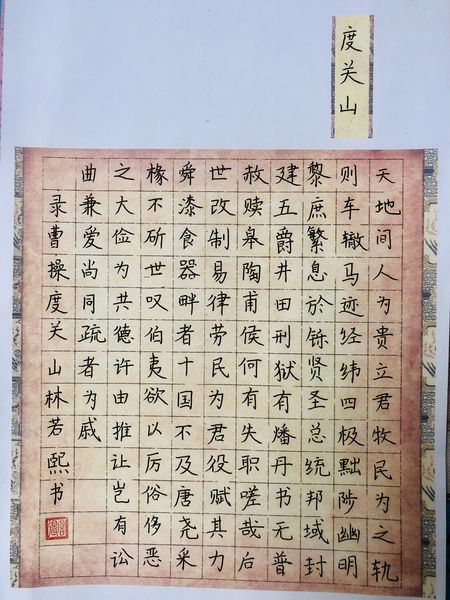 度关山
天地间人为贵立君牧民为之轨
则车辙马迹经纬四极黜陟幽明
黎庶繁息於铄贤圣总统邦域封
建五爵井田刑狱有燔丹书无普
赦赎皋陶甫侯何有失职嗟哉后
世改制易律劳民为君役赋其力
舜漆食器畔者十国不及唐尧采
椽不斫世叹伯夷欲以厉俗侈恶
之大俭为共德许由推让岂有讼
曲兼爱尚同疏者为戚
录曹操度关山林若熙书